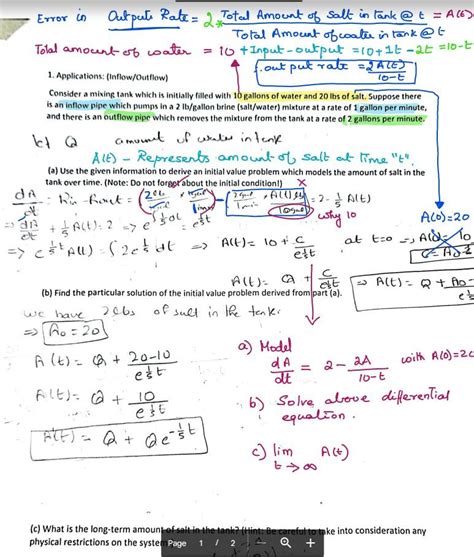 Error in Output Rate = 2 * Total Amount of Salt in tank @ t = A(t)
Total Amount of water in tank @ t
Total amount of water = 10 + Input - output = 10 + 1t - 2t = 10-t
∴ output rate = 2A(t)/10-t
1. Applications: (Inflow/Outflow)
Consider a mixing tank which is initially filled with 10 gallons of water and 20 lbs of salt. Suppose there
is an inflow pipe which pumps in a 2 lb/gallon brine (salt/water) mixture at a rate of 1 gallon per minute,
and there is an outflow pipe which removes the mixture from the tank at a rate of 2 gallons per minute.
Q amount of water in tank
A(t) - Represents amount of salt at time "t".
(a) Use the given information to derive an initial value problem which models the amount of salt in the
tank over time. (Note: Do not forget about the initial condition!)
dA/dt = Rin - Rout = = 2 - 1/5 A(t)
why 10
A(0)=20
=> dA/dt + 1/5 A(t) = 2 => e^∫1/5 dt = e^1/5t
=> e^1/5t A(t) = ∫2e^1/5t dt => A(t) = 10 + C/e^1/5t at t=0 =>
A(t) = Q + C/e^1/5t => A(t) = Q + A0-
(b) Find the particular solution of the initial value problem derived from part (a).
we have 20lbs of salt in the tank.
=> A0 = 20
A(t) = Q + 20-10/e^1/5t
A(t) = Q + 10/e^1/5t
A(t) = Q + Qe^-1/5t
a) Model
dA/dt = 2 - 2A/10-t with A(0)=20
b) Solve above differential
equation.
c) lim t→∞ A(t)
(c) What is the long-term amount of salt in the tank? (Hint: Be careful to take into consideration any
physical restrictions on the system
Page 1 / 2 - +